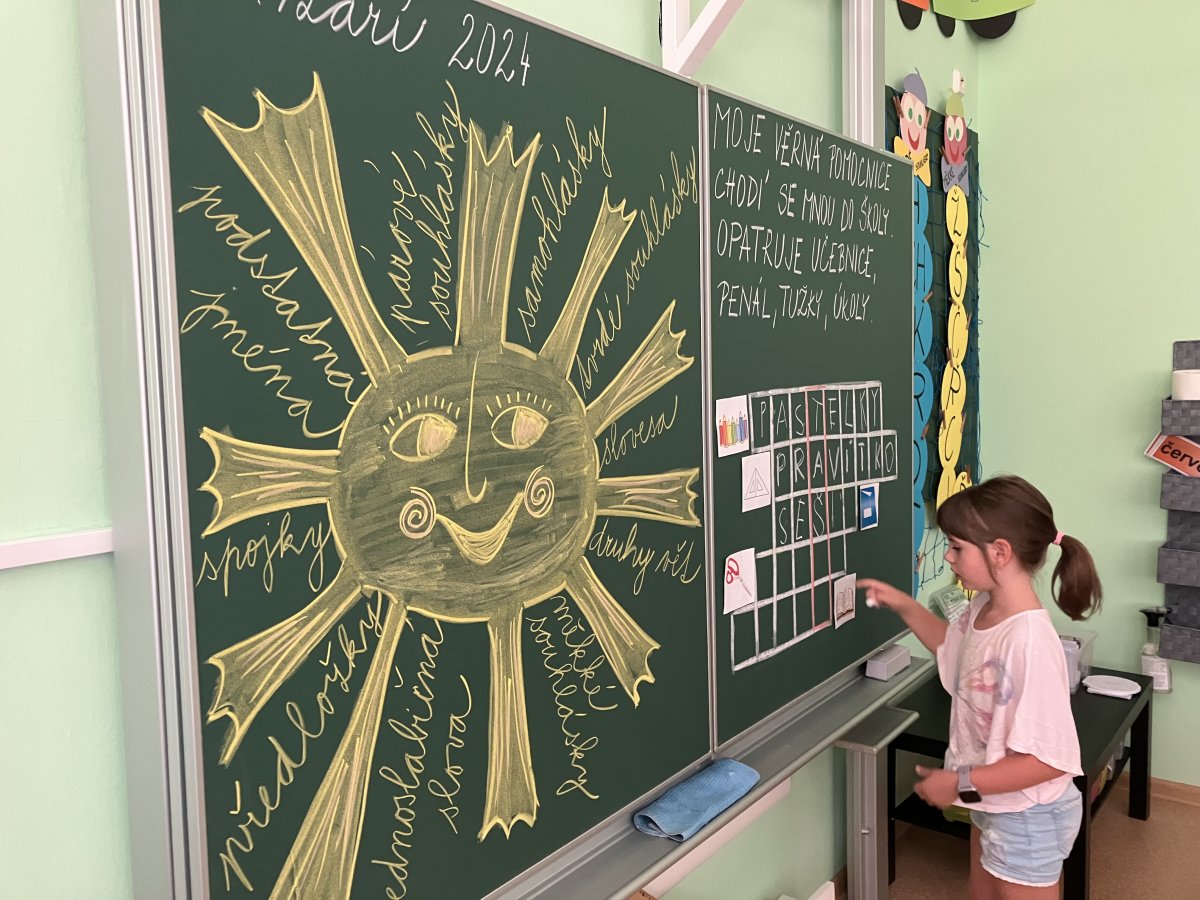 září 2024
podstatná
jména
párové
souhlásky
samohlásky
tvrdé souhlásky
slovesa
druhy vět
měkké
souhlásky
jednoslabičná
slova
předložky
spojky
MOJE VĚRNÁ POMOCNICE
CHODÍ SE MNOU DO ŠKOLY.
OPATRUJE UČEBNICE,
PENÁL, TUŽKY, ÚKOLY.
PASTELKY
PRAVÍTKO
SEŠIT